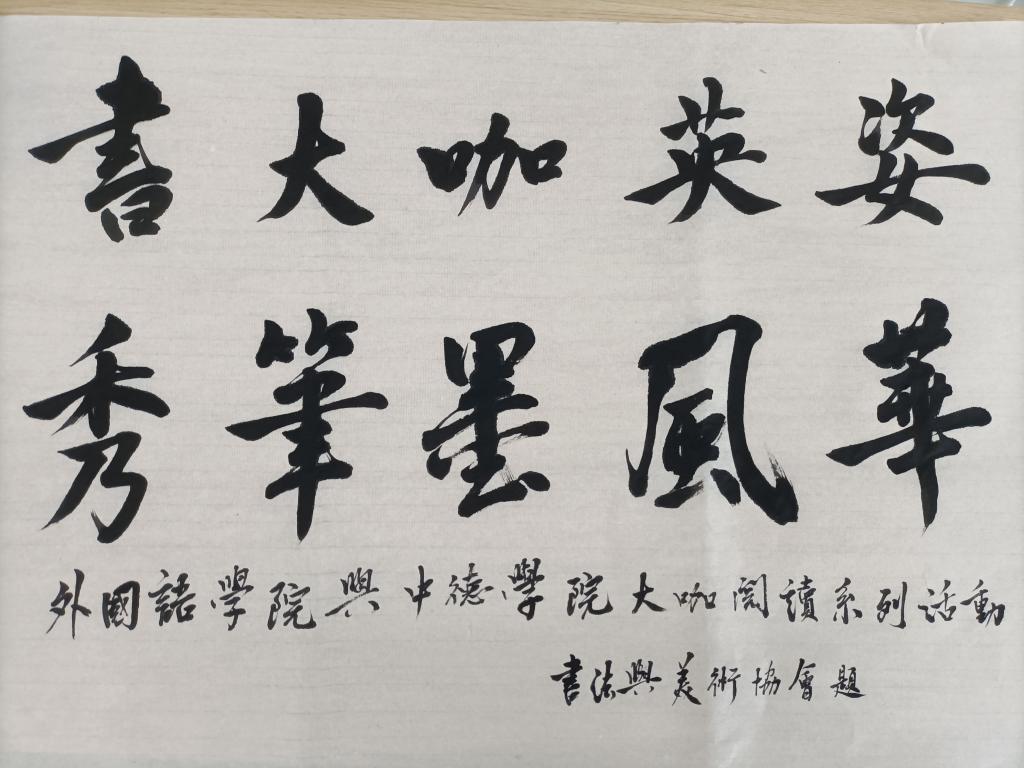 書大咖英姿
秀筆墨風華
外國語學院與中德學院大咖閱讀系列活動
書法與美術協會題